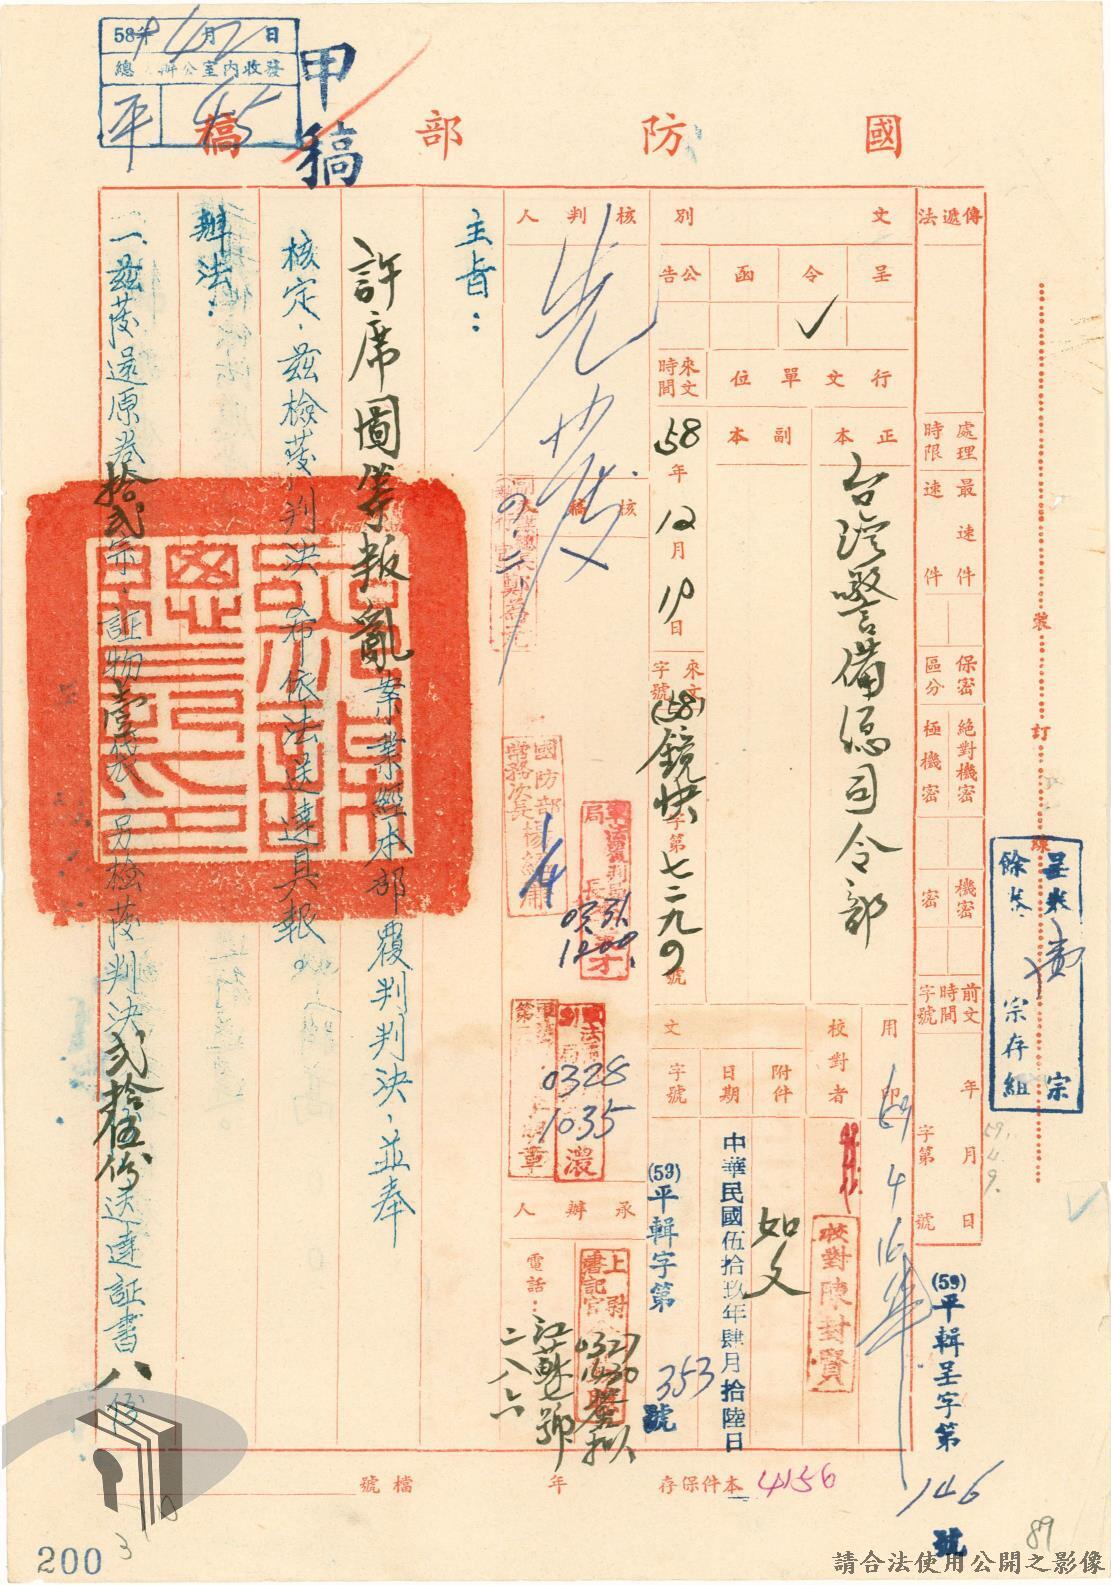 國防部稿
甲
稿
58年 月 日
總 辦公室內收發
平 45
傳遞法
處理時限
最速件
速件
保密區分
絕對機密
極機密
機密
密
前文時間字號
年 月 日
字第 號
文別
呈
令
函
公告
✓
行文單位
正本
副本
台灣警備總司令部
來文時間
58年12月19日
來文字號
(58)鏡快字第七二九0號
用印
59 4 16
校對者
校對陳封賢
附件
如文
發文
日期
中華民國伍拾玖年肆月拾陸日
字號
(59)平輯字第353號
(59)平輯呈字第146號
核判人
核稿
國防部常務次長楊
1/4
0331
1200
0328
1035
承辦人
上尉書記官
0327
電話:江蘇號二八六
主旨:
許席圖等叛亂案業經本部覆判判決,並奉
核定,茲檢發判決,希依法送達具報。
辦法:
一、茲發還原卷拾貳宗,証物壹袋,另檢發判決貳拾伍份送達証書八份
裝訂線
呈來 壹 宗
餘卷 宗存組
59.4.9.
年
檔號
本件保存
4156
89
200
3
請合法使用公開之影像